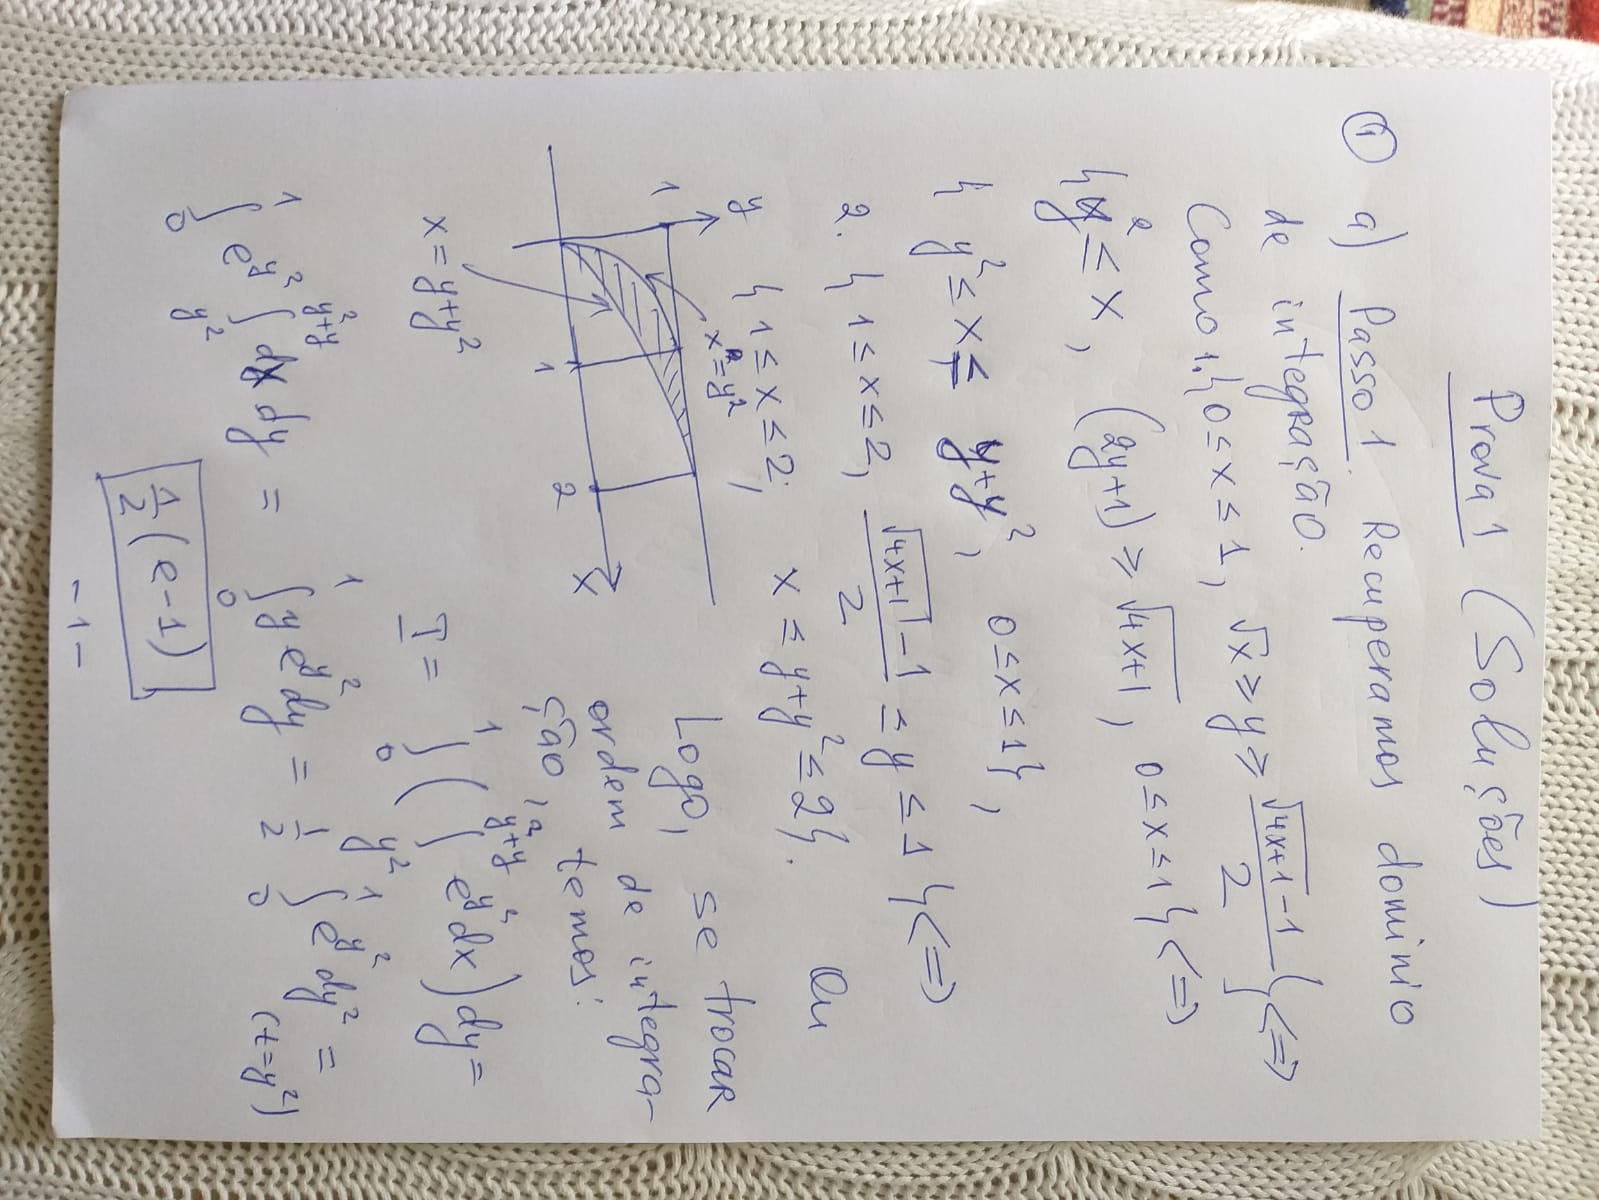 Prova 1 (Soluções)
① a) Passo 1. Recuperamos dominio
de integração.
Como 1.{0≤x≤1, √x ≥ y ≥ (√(4x+1) -1)/2} <=>
{y² ≤ x, (2y+1) ≥ √(4x+1), 0≤x≤1} <=>
{y² ≤ x ≤ y+y², 0≤x≤1},
2. {1≤x≤2, (√(4x+1) -1)/2 ≤ y ≤ 1} <=>
{1≤x≤2, x ≤ y+y² ≤ 2}. Ou
y
1
x=y²
1
2
x
x=y+y²
Logo, se trocar
ordem de integra-
ção, temos:
I = ∫₀¹ ( ∫_{y²}^{y+y²} e^{y²} dx ) dy =
∫₀¹ e^{y²} ∫_{y²}^{y²+y} dx dy = ∫₀¹ y e^{y²} dy = 1/2 ∫₀¹ e^{y²} dy² =
(t=y²)
1/2 (e-1)
-1-